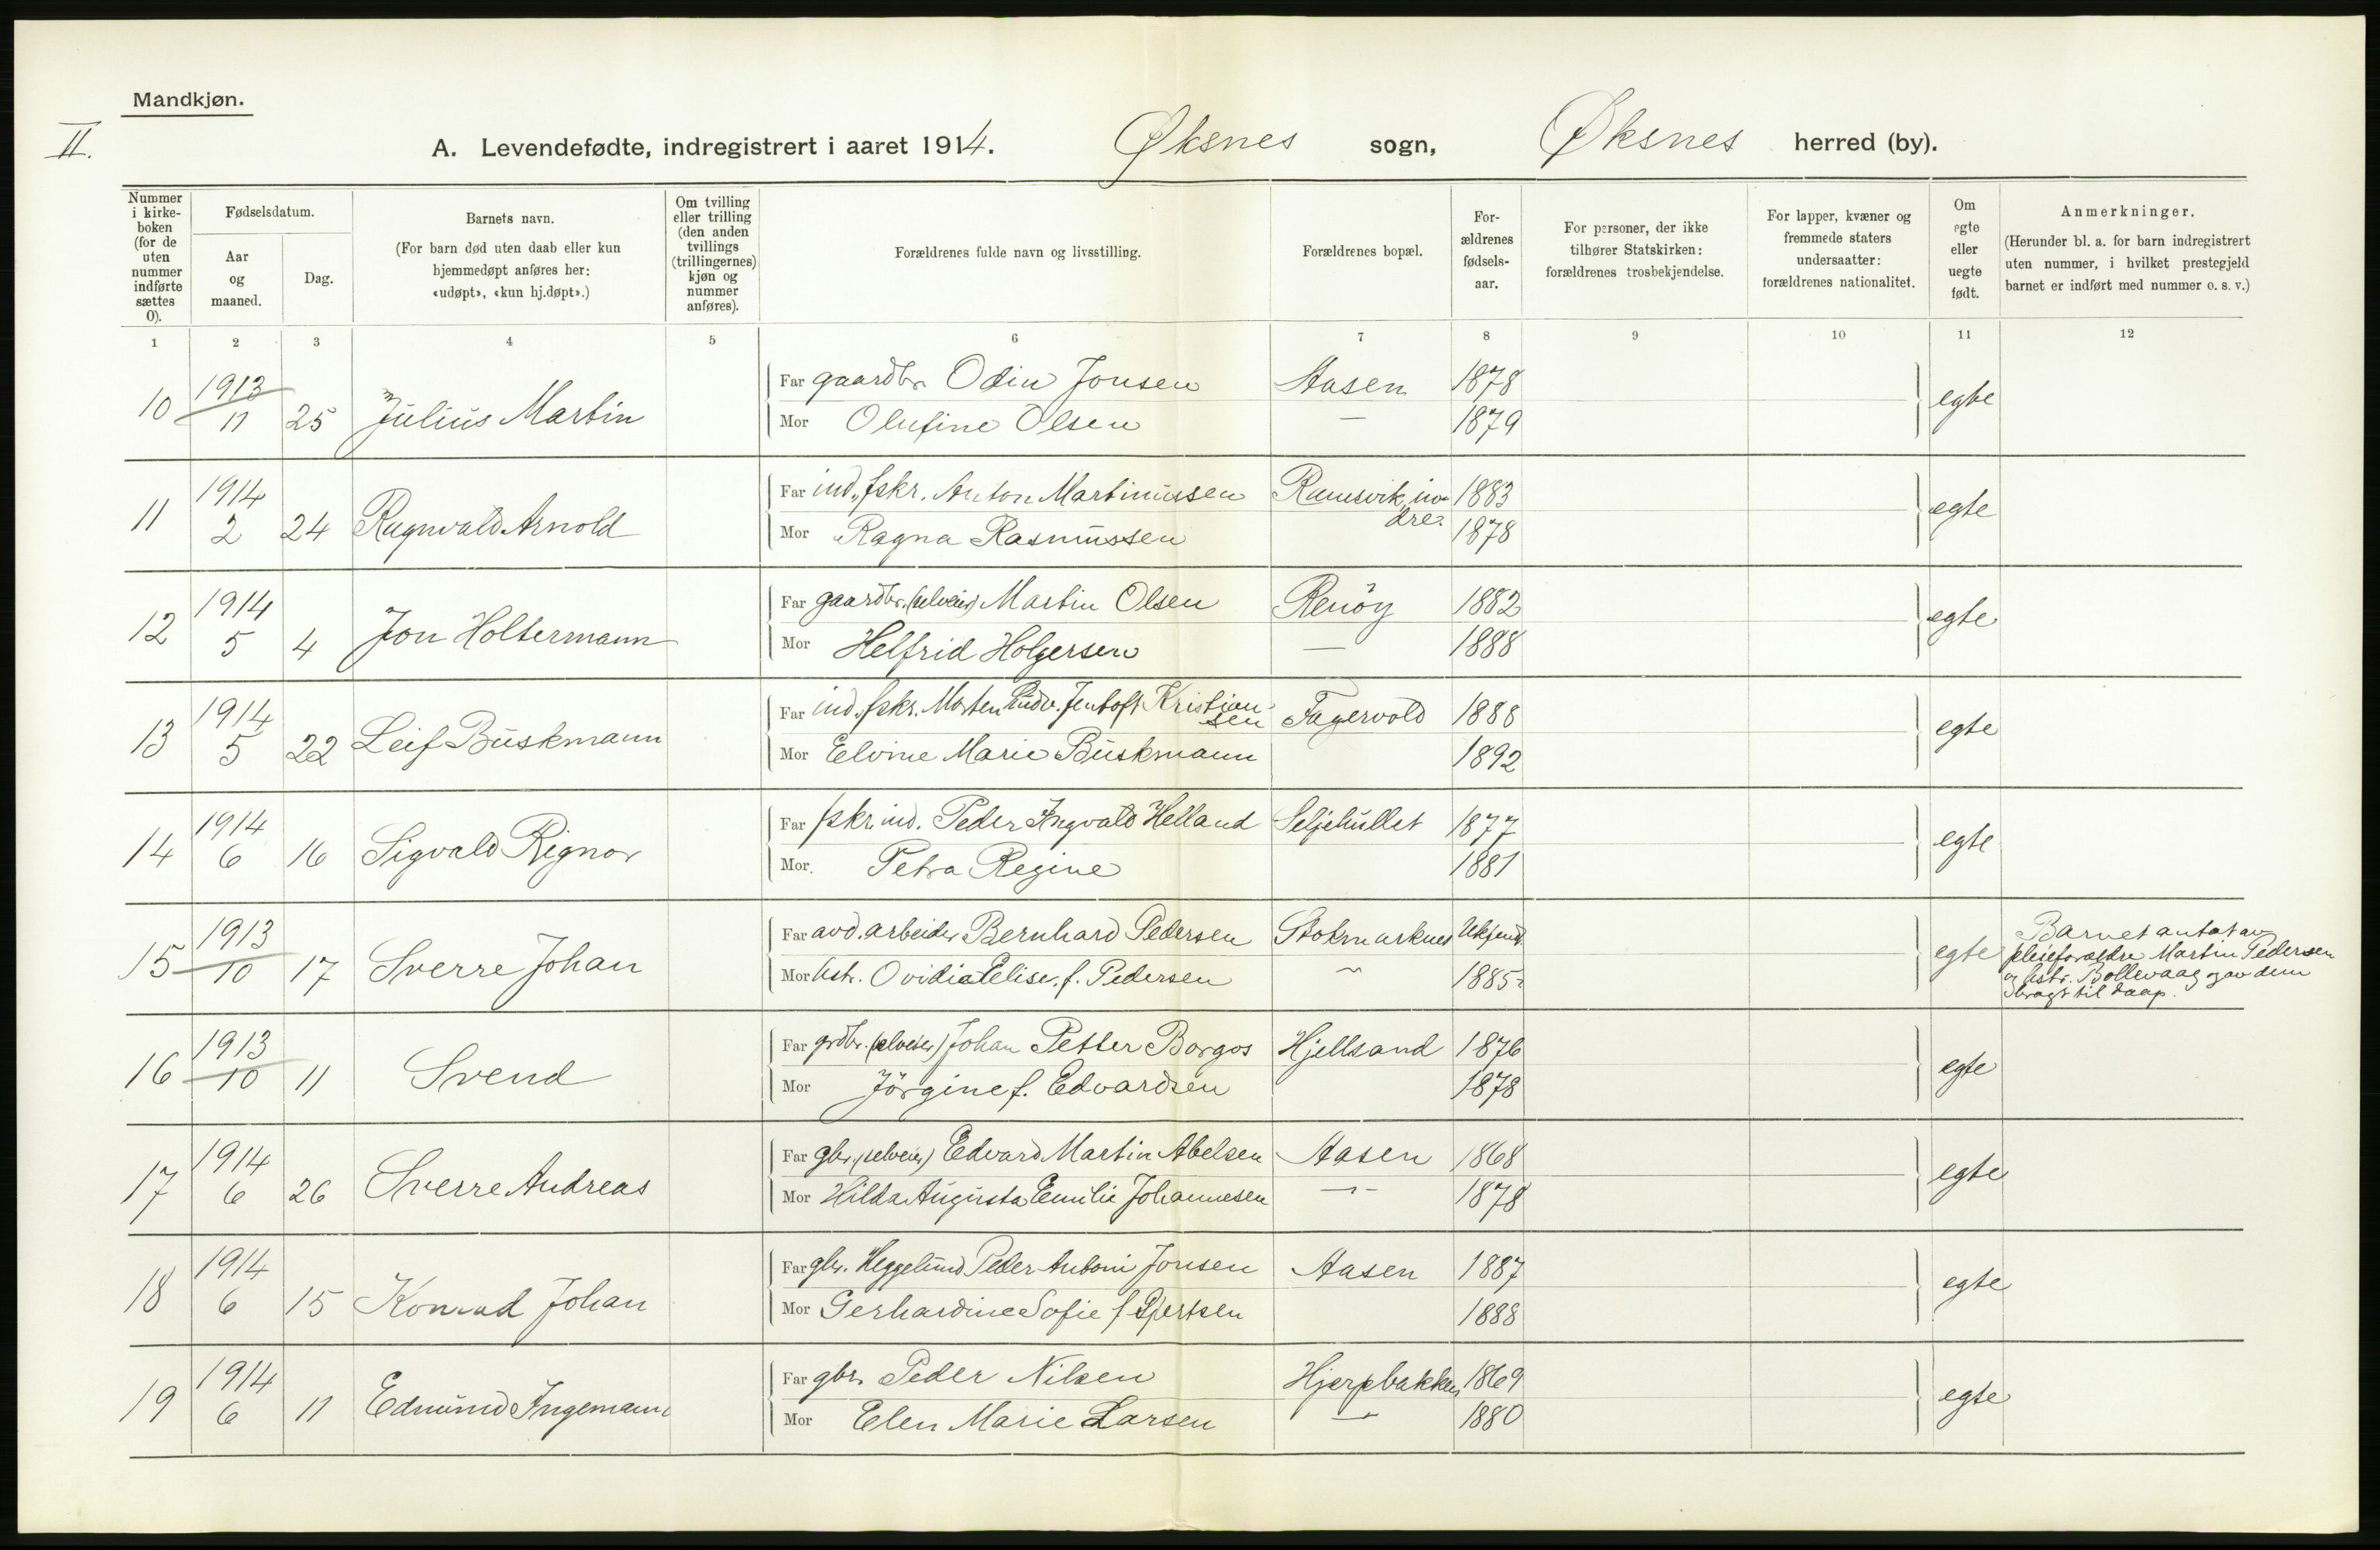 Mandkjøn.
II.
A. Levendefødte, indregistrert i aaret 1914. Øksnes sogn, Øksnes herred (by).
Nummer i kirkeboken (for de uten nummer indførte sættes 0).
Fødselsdatum.
Aar og maaned.
Dag.
Barnets navn.
(For barn død uten daab eller kun hjemmedøpt anføres her: «udøpt», «kun hj.døpt».)
Om tvilling eller trilling (den anden tvillings (trillingernes) kjøn og nummer anføres).
Forældrenes fulde navn og livsstilling.
Forældrenes bopæl.
Forældrenes fødselsaar.
For personer, der ikke tilhører Statskirken: forældrenes trosbekjendelse.
For lapper, kvæner og fremmede staters undersaatter: forældrenes nationalitet.
Om egte eller uegte født.
Anmerkninger.
(Herunder bl. a. for barn indregistrert uten nummer, i hvilket prestegjeld barnet er indført med nummer o. s. v.)
1 2 3 4 5 6 7 8 9 10 11 12
10 1913 11 25 Julius Martin Far gaardbr. Odin Jonsen Aasen 1878 egte
Mor Olufine Olsen — 1879
11 1914 2 24 Ragnvald Arnold Far ind., fskr. Anton Martinussen Ramsvik, indre 1883 egte
Mor Ragna Rasmussen 1878
12 1914 5 4 Jon Holtermann Far gaardbr. (selveier) Martin Olsen Renöy 1882 egte
Mor Helfrid Holgersen — 1888
13 1914 5 22 Leif Buskmann Far ind., fskr. Morten Jentoft Kristiansen Fagervold 1888 egte
Mor Elvine Marie Buskmann 1892
14 1914 6 16 Sigvald Rignor Far fskr. ind. Peder Ingvald Helland Seljehullet 1877 egte
Mor. Petra Regine 1881
15 1913 10 17 Sverre Johan Far avd. arbeider Bernhard Pedersen Stokmarknes Ukjendt egte Barnet antat av
Mor hstr. Ovidia Elise, f. Pedersen — 1885 pleieforældre Martin Pedersen
og hstr. Bollevaag og av dem
bragt til daap.
16 1913 10 11 Svend Far grdbr. (selveier) Johan Petter Borgos Hjellsand 1876 egte
Mor Jörgine f. Edvardsen 1878
17 1914 6 26 Sverre Andreas Far gbr. (selveier) Edvard Martin Abelsen Aasen 1868 egte
Mor Hilda Augusta Emilie Johannesen — 1878
18 1914 6 15 Konrad Johan Far gbr. Heggelund Peder Antoni Jonsen Aasen 1887 egte
Mor Gerhardine Sofie f. Gjertsen 1888
19 1914 6 11 Edmund Ingemann Far gbr. Peder Nilsen Hjerpbakken 1869 egte
Mor Elen Marie Larsen — 1880